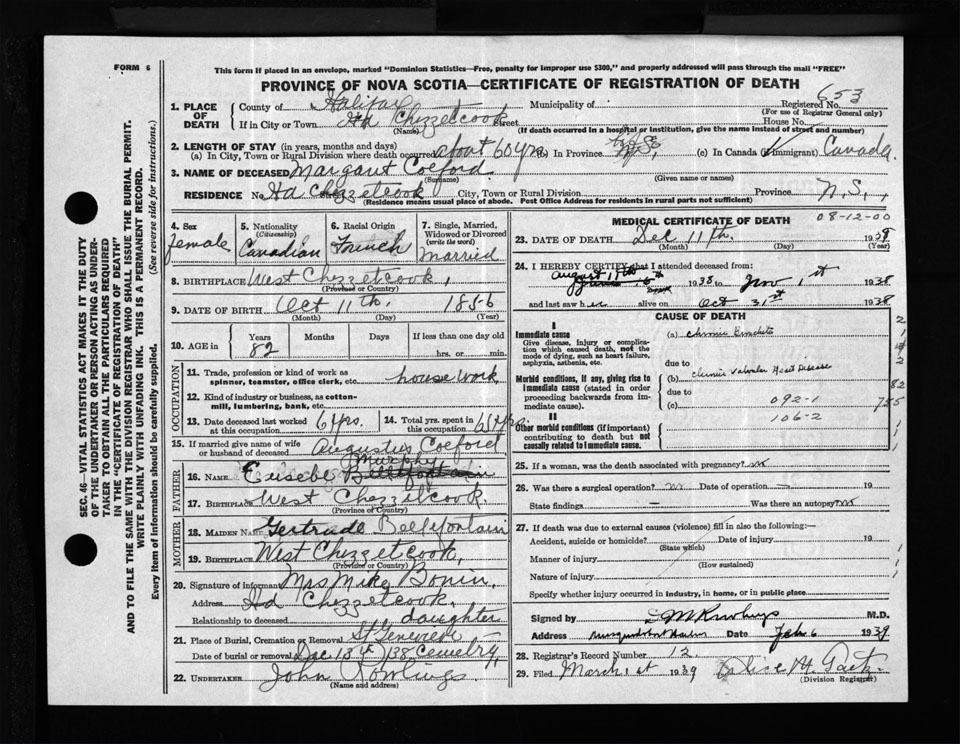 FORM 6
This form if placed in an envelope, marked "Dominion Statistics—Free, penalty for improper use $300," and properly addressed will pass through the mail "FREE"
PROVINCE OF NOVA SCOTIA—CERTIFICATE OF REGISTRATION OF DEATH
653
1. PLACE OF DEATH County of Halifax Municipality of Registered No.
(For use of Registrar General only)
If in City or Town Hd Chezzetcook Street House No.
(Name) (If death occurred in a hospital or institution, give the name instead of street and number)
2. LENGTH OF STAY (in years, months and days)
(a) In City, Town or Rural Division where death occurred about 60 yrs (b) In Province N.S. (c) In Canada (if immigrant) Canada.
3. NAME OF DECEASED Margaret Coeford
(Surname) (Given name or names)
RESIDENCE No. Hd Chezzetcook Street City, Town or Rural Division Province N.S.,
(Residence means usual place of abode. Post Office Address for residents in rural parts not sufficient)
4. Sex female
5. Nationality (Citizenship) Canadian
6. Racial Origin French
7. Single, Married, Widowed or Divorced (write the word) Married
8. BIRTHPLACE West Chezzetcook,
(Province or Country)
9. DATE OF BIRTH Oct 11th. 1856
(Month) (Day) (Year)
10. AGE in Years Months Days If less than one day old
82 hrs. or min.
OCCUPATION
11. Trade, profession or kind of work as spinner, teamster, office clerk, etc. house work
12. Kind of industry or business, as cotton-mill, lumbering, bank, etc.
13. Date deceased last worked at this occupation 6 yrs.
14. Total yrs. spent in this occupation 65 yrs.
15. If married give name of wife or husband of deceased Augustus Coeford
FATHER
Murphy
16. NAME Eusebe
17. BIRTHPLACE West Chezzetcook
(Province or Country)
MOTHER
18. MAIDEN NAME Gertrude Bellefontain
19. BIRTHPLACE West Chezzetcook,
(Province or Country)
20. Signature of informant Mrs Mike Bonin,
Address Hd Chezzetcook.
Relationship to deceased daughter
21. Place of Burial, Cremation or Removal St Genevieve
Date of burial or removal Dec 13th 1938 cemetry,
22. UNDERTAKER John Rowlings
(Name and address)
MEDICAL CERTIFICATE OF DEATH
08-12-00
23. DATE OF DEATH Dec 11th. 1938
(Month) (Day) (Year)
24. I HEREBY CERTIFY that I attended deceased from:
August 15th 1938 to Nov 1st 1938
and last saw her alive on Oct 31st 1938
CAUSE OF DEATH
I
Immediate cause
Give disease, injury or complication which caused death, not the mode of dying, such as heart failure, asphyxia, asthenia, etc.
(a) Chronic Bronchitis
due to
Morbid conditions, if any, giving rise to immediate cause (stated in order proceeding backwards from immediate cause).
(b) Chronic Valvular Heart Disease
due to
(c) 092-1
106-2
II
Other morbid conditions (if important) contributing to death but not causally related to immediate cause.
25. If a woman, was the death associated with pregnancy? no
26. Was there a surgical operation? no Date of operation — 19
State findings — Was there an autopsy? no
27. If death was due to external causes (violence) fill in also the following:—
Accident, suicide or homicide? Date of injury 19
(State which)
Manner of injury
(How sustained)
Nature of injury
Specify whether injury occurred in industry, in home, or in public place
Signed by M.D.
Address Musquodoboit Harbor Date Feb 6 1939
28. Registrar's Record Number 12
29. Filed March 1st 1939
(Division Registrar)
SEC. 46—VITAL STATISTICS ACT MAKES IT THE DUTY
OF THE UNDERTAKER OR PERSON ACTING AS UNDERTAKER TO OBTAIN ALL THE PARTICULARS REQUIRED
IN THE "CERTIFICATE OF REGISTRATION OF DEATH"
AND TO FILE THE SAME WITH THE DIVISION REGISTRAR WHO SHALL ISSUE THE BURIAL PERMIT.
WRITE PLAINLY WITH UNFADING INK. THIS IS A PERMANENT RECORD.
Every item of information should be carefully supplied. (See reverse side for instructions.)